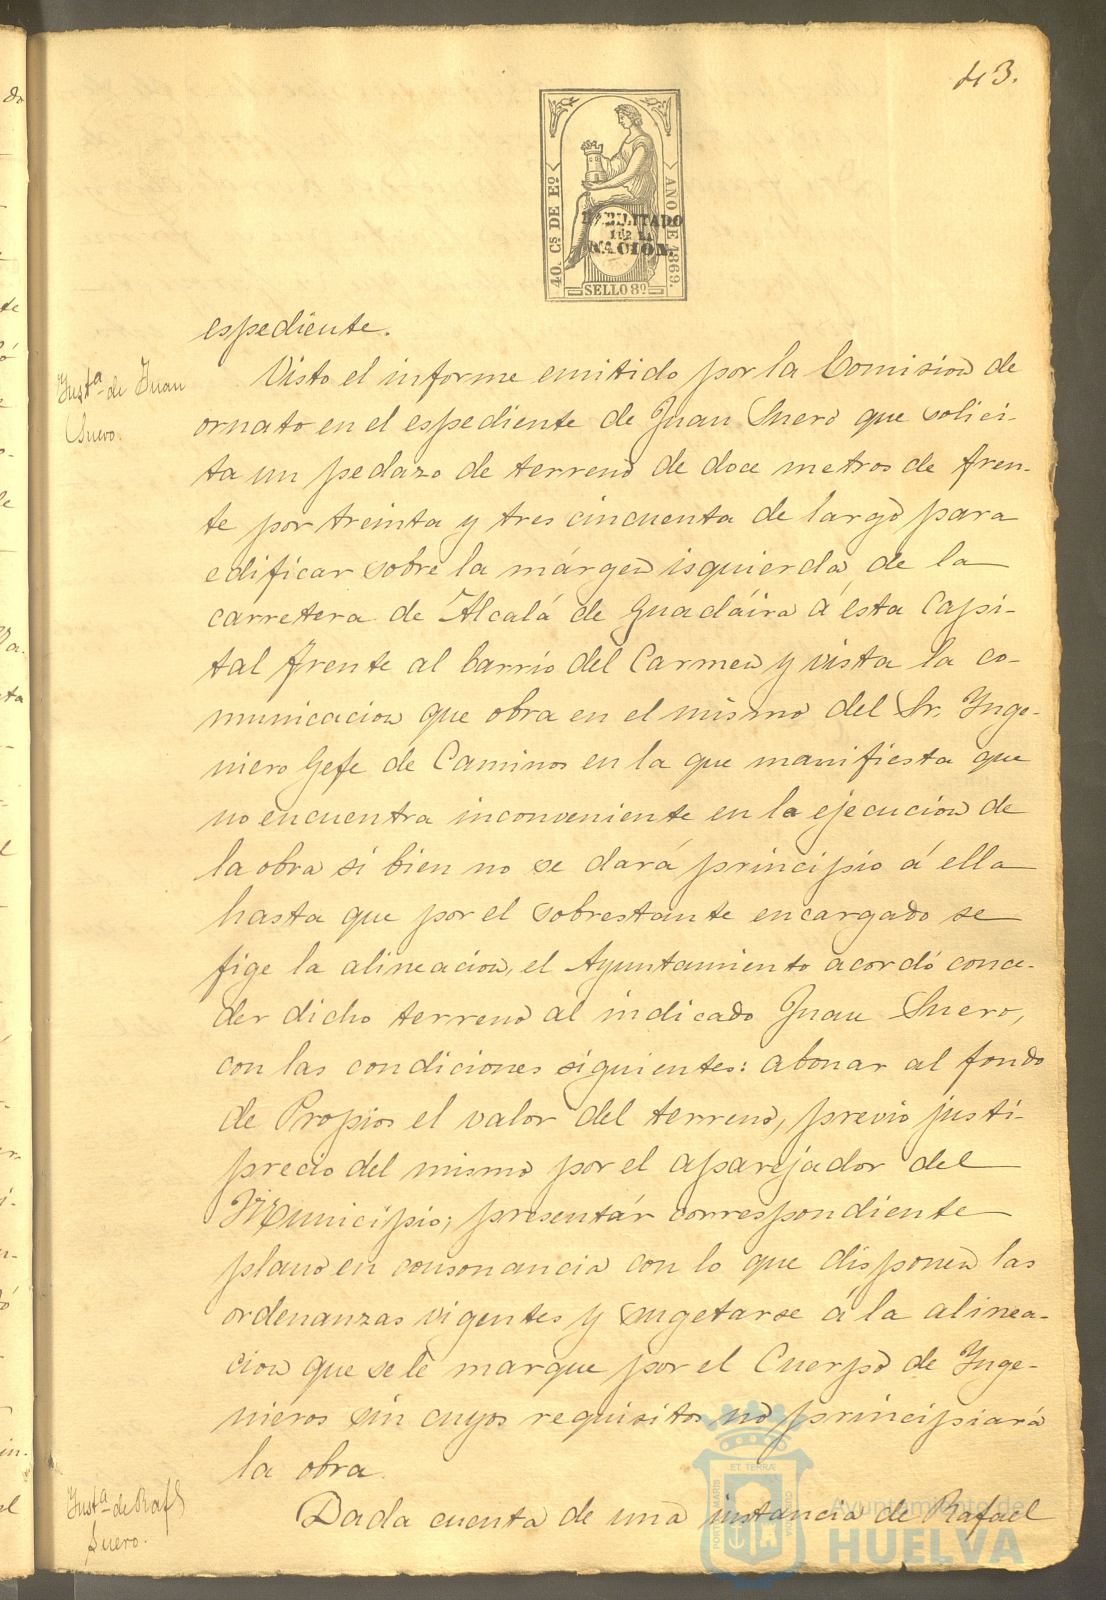 43.
40. Cs DE Eo
AÑO DE 1869.
HABILITADO
POR LA
NACION.
SELLO 8º
espediente.
Instª de Juan
Suero.
Visto el informe emitido por la Comision de
ornato en el espediente de Juan Suero que solici-
ta un pedazo de terreno de doce metros de fren-
te por treinta y tres cincuenta de largo para
edificar sobre la márgen isquierda de la
carretera de Alcalá de Guadáira á esta Capi-
tal frente al barrio del Carmen y vista la co-
municacion que obra en el mismo del Sr. Inge-
niero Gefe de Caminos en la que manifiesta que
no encuentra inconveniente en la ejecucion de
la obra si bien no se dará principio á ella
hasta que por el sobrestante encargado se
fige la alineacion, el Ayuntamiento acordó conce-
der dicho terreno al indicado Juan Suero,
con las condiciones siguientes: abonar al fondo
de Propios el valor del terreno, previo justi-
precio del mismo por el aparejador del
Municipio; presentár correspondiente
plano en consonancia con lo que disponen las
ordenanzas vigentes y sugetarse á la alinea-
cion que se le marque por el Cuerpo de Inge-
nieros sin cuyos requisitos no principiará
la obra.
Instª de Rafl
Suero.
Dada cuenta de una instancia de Rafael
Ayuntamiento de
HUELVA